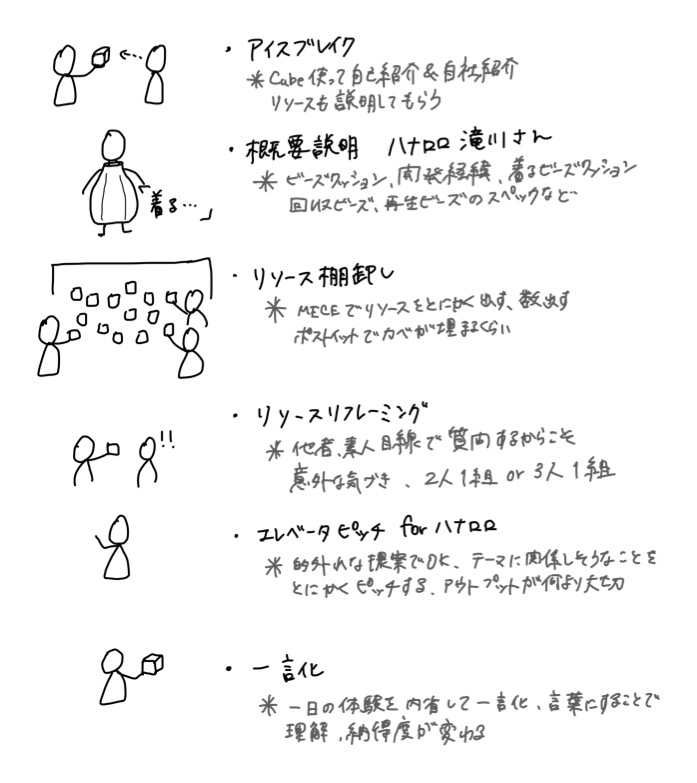 ・アイスブレイク
＊Cube使って自己紹介＆自社紹介
リソースも説明してもらう
・概要説明 ハナロロ 滝川さん
＊ビーズクッション、開発経緯、着るビーズクッション
回収ビーズ、再生ビーズのスペックなど
着る…」
・リソース棚卸し
＊MECEでリソースをとにかく出す、数出す
ポストイットでカベが埋まるくらい
・リソースリフレーミング
＊他者、素人目線で質問するからこそ
意外な気づき、2人1組 or 3人1組
!!
・エレベータピッチ for ハナロロ
＊的外れな提案でOK、テーマに関係しそうなことを
とにかくピッチする、アウトプットが何より大切
・一言化
＊一日の体験を内省して一言化、言葉にすることで
理解、納得度が変わる